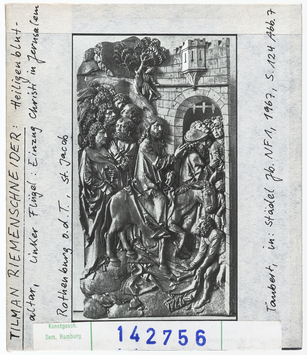 TILMAN RIEMENSCHNEIDER: Heiligenblut-
altar, linker Flügel: Einzug Christi in Jerusalem
Rothenburg o.d.T. St. Jacob
Taubert, in: Städel Jb. NF 1, 1967, S. 124 Abb. 7
Kunstgesch.
Sem. Hamburg
142756